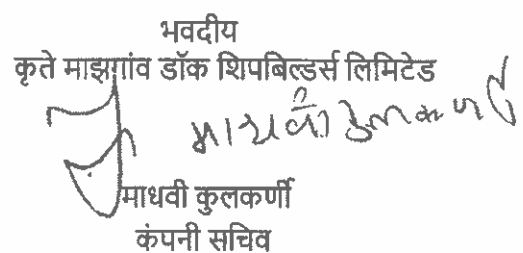 भवदीय
कृते माझगांव डॉक शिपबिल्डर्स लिमिटेड
माधवी कुलकर्णी
माधवी कुलकर्णी
कंपनी सचिव